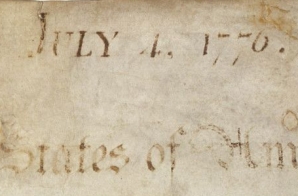 JULY 4, 1776.
States of Am